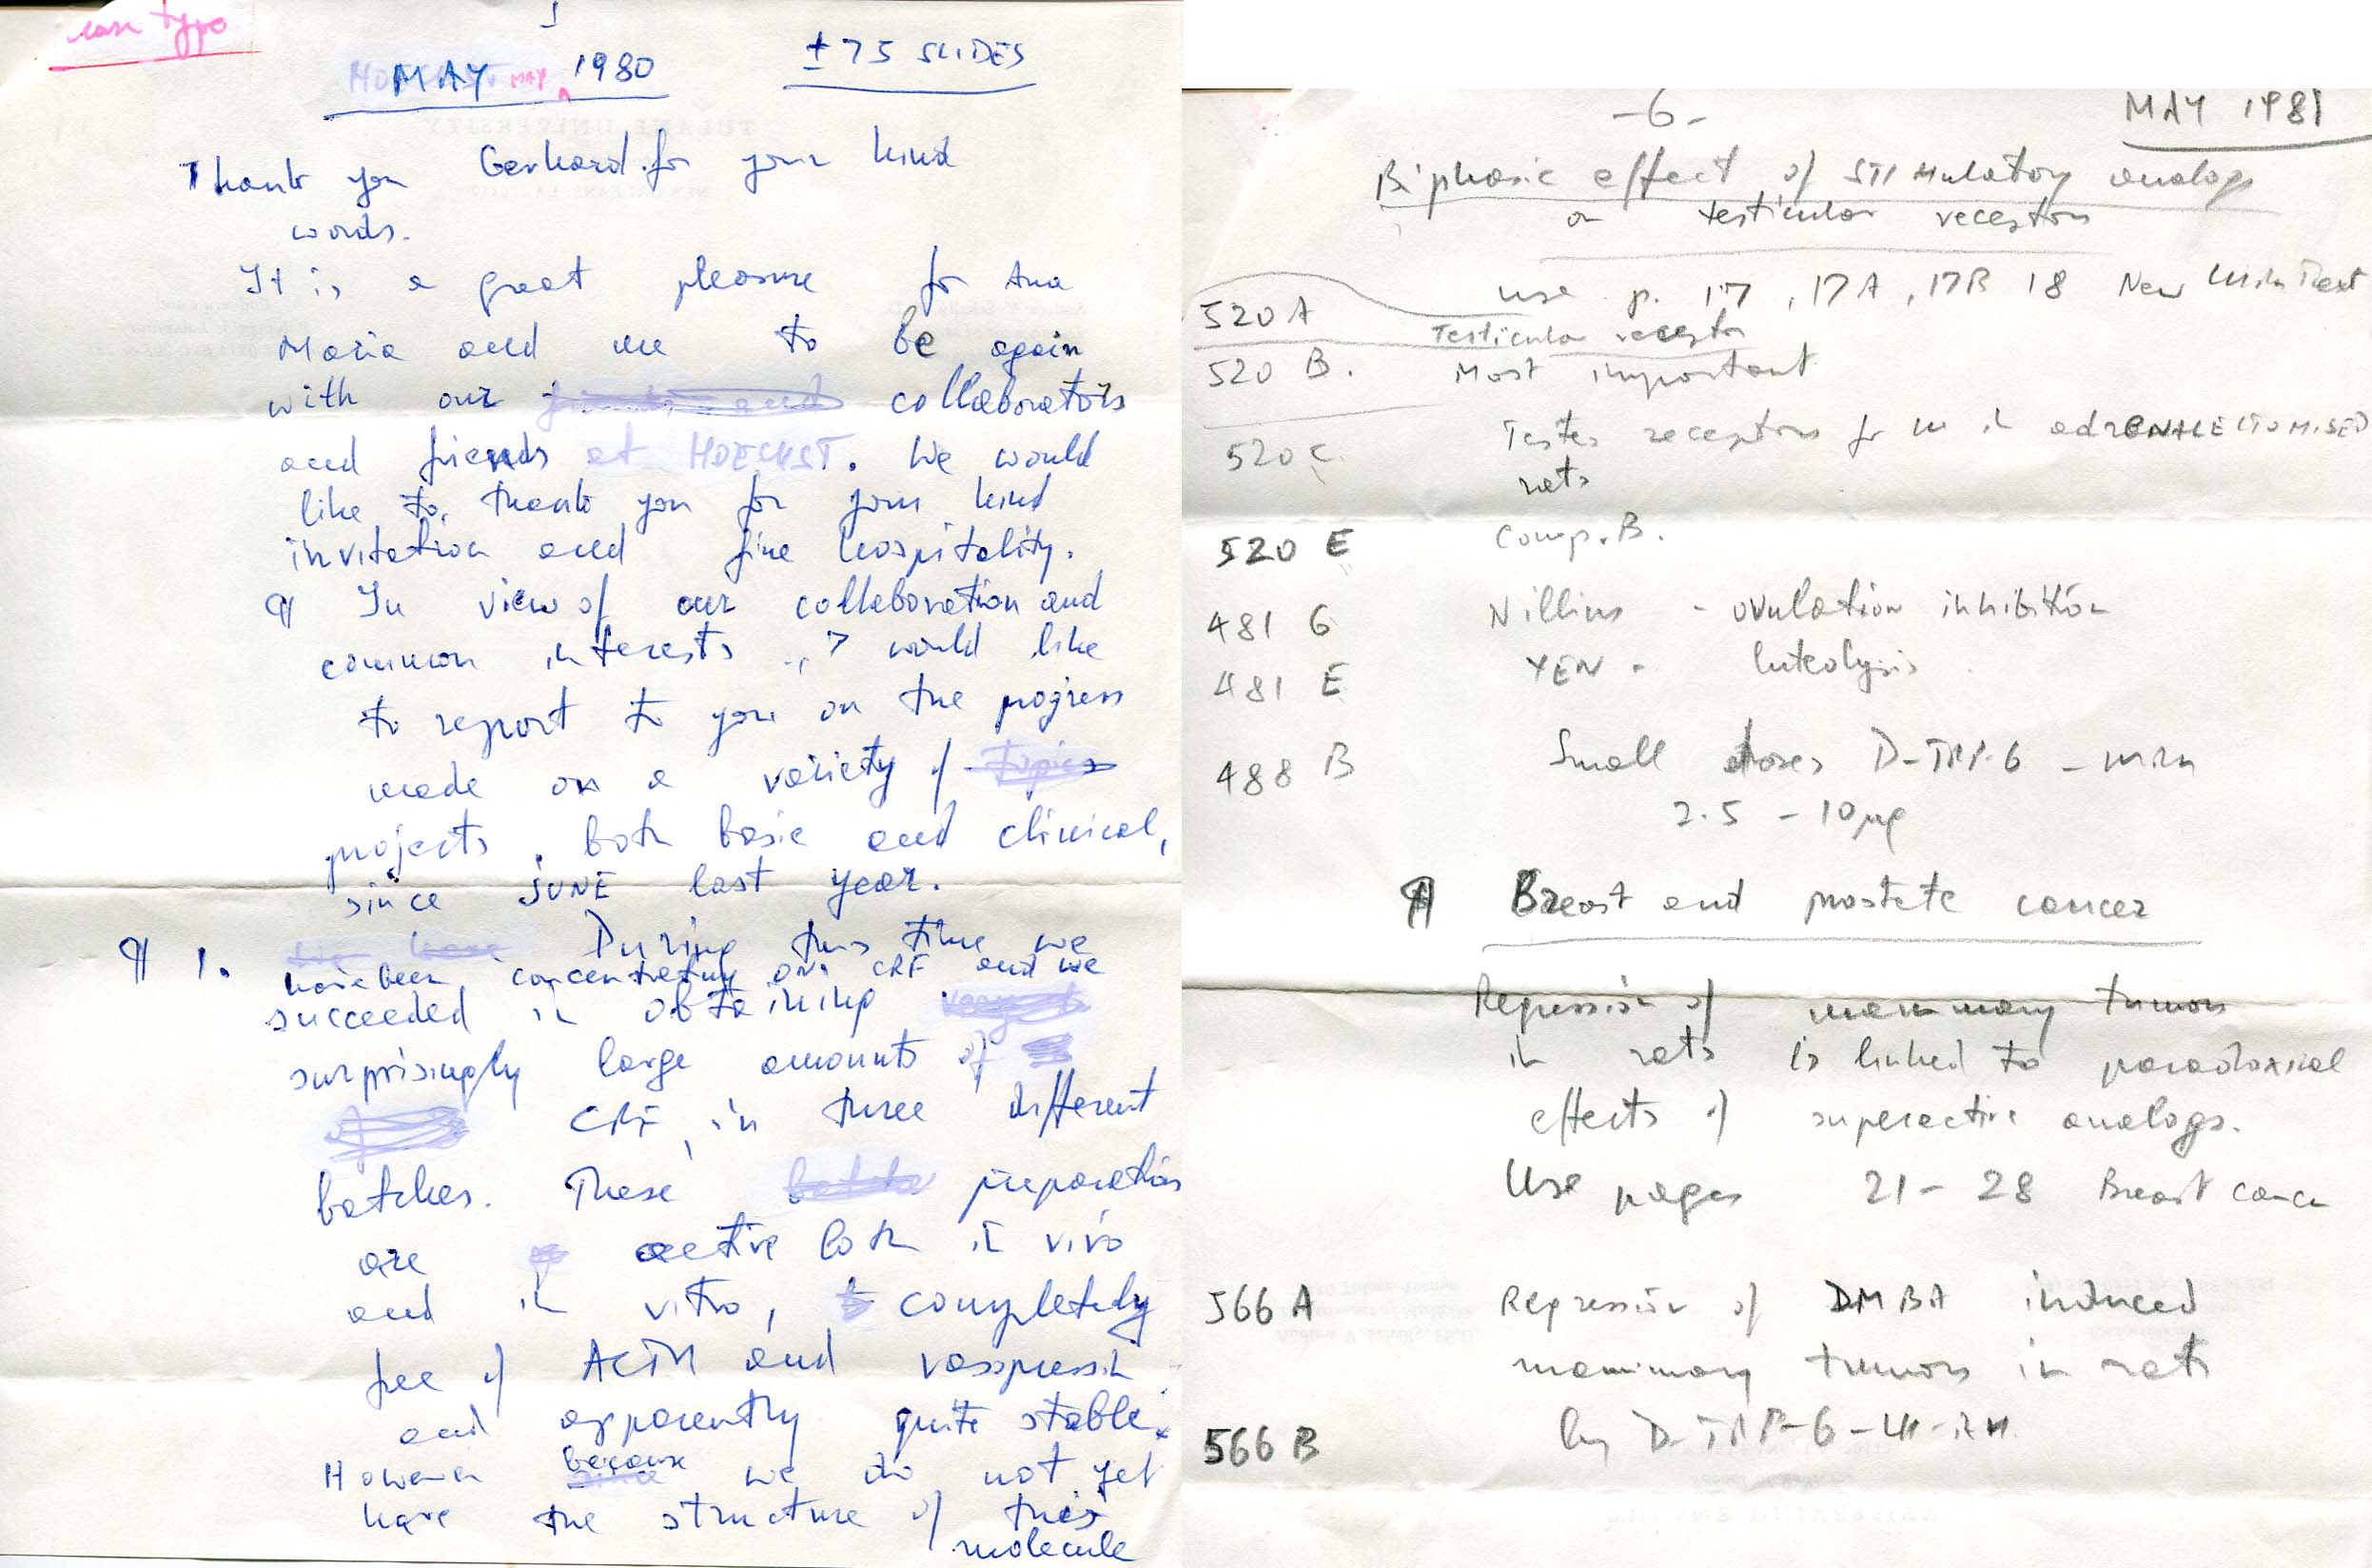 1
MAY MAY 1980
± 75 SLIDES
Thank you Gerhard for your kind
words.
It is a great pleasure for Ana
Maria and me to be again
with our friends and collaborators
and friends at HOECHST. We would
like to, thank you for your kind
invitation and fine hospitality.
¶ In view of our collaboration and
common interests, I would like
to report to you on the progress
made on a variety of topics
projects, both basic and clinical,
since JUNE last year.
¶ 1. We have During this time we
have been concentrating on CRF and we
succeeded in obtaining
surprisingly large amounts of
CRF, in three different
batches. These batches preparations
are active both in vivo
and in vitro, completely
free of ACTH and vasopressin
and apparently quite stable.
However because we do not yet
have the structure of this
molecule
-6-
MAY 1981
Biphasic effect of STIMulatory analogs
on testicular receptors
use p. 17, 17A, 17B 18 New
520 A Testicular receptor
520 B. Most important
520 C. Testes receptors for in adRENALECTOMISED
rats
520 E Comp. B.
481 G Nillius - ovulation inhibition
481 E YEN - luteolysis
488 B Small doses D-TRP-6 -
2.5 - 10 µg
¶ Breast and prostate cancer
Regression of mammary tumors
in rats is linked to paradoxical
effects of superactive analogs.
Use pages 21 - 28 Breast cancer
566 A Regression of DMBA induced
mammary tumors in rats
566 B by D-TRP-6-LH-RH.